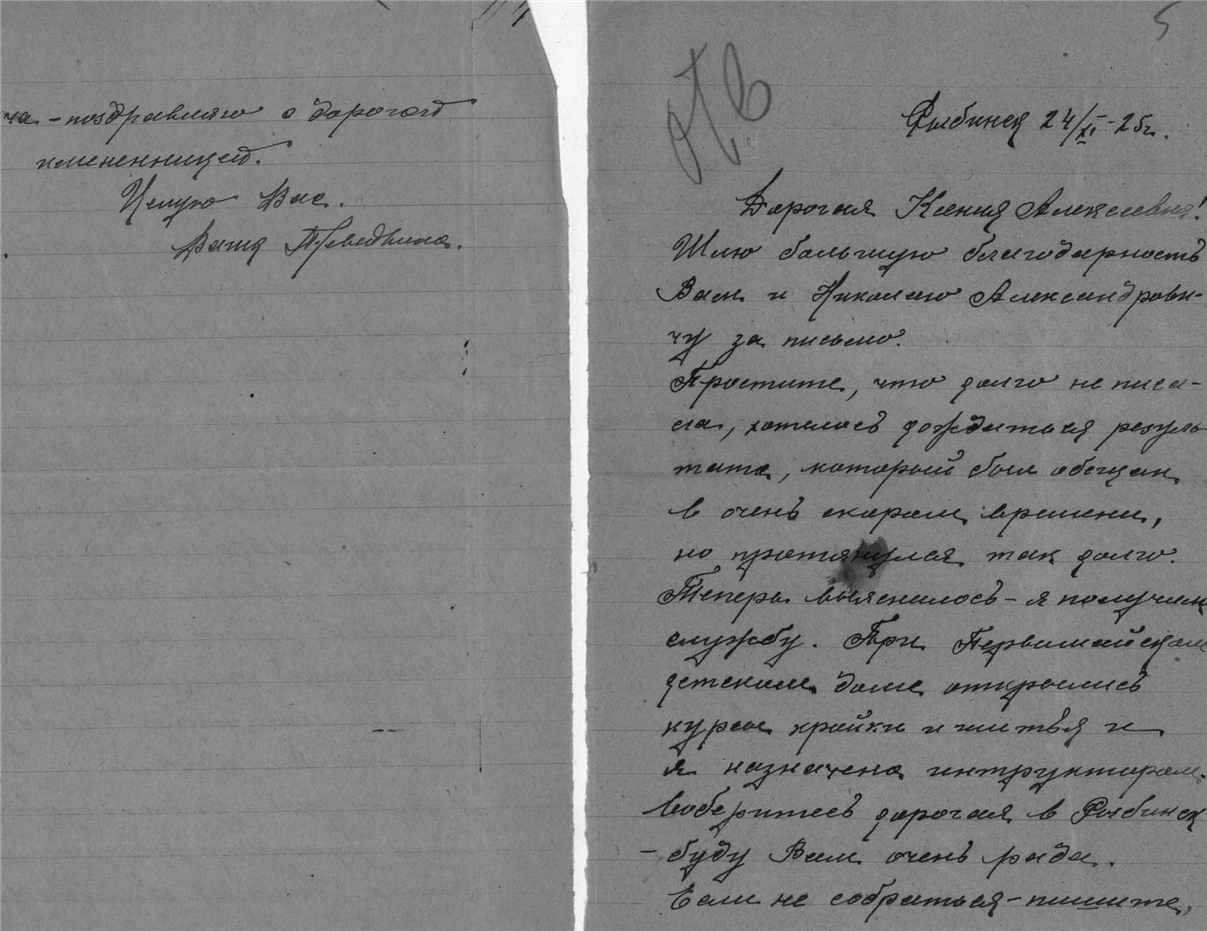 ча - поздравляю с дорогой
именинницей.
Целую Вас.
Ваша
5
отв
Рыбинск 24/XI - 25 г.
Дорогая Ксения Алексеевна!
Шлю большую благодарность
Вам и Николаю Александрови-
чу за письмо.
Простите, что долго не писа-
ла, хотелось дождаться резуль
тата, который был обещан
в очень скором времени,
но протянулся так долго.
Теперь выяснилось - я получила
службу. При Первомайском
детском доме открылись
курсы кройки и шитья и
я назначена интруктором.
Соберитесь дорогая в Рыбинск
- буду Вам очень рада.
Если не собраться - пишите,